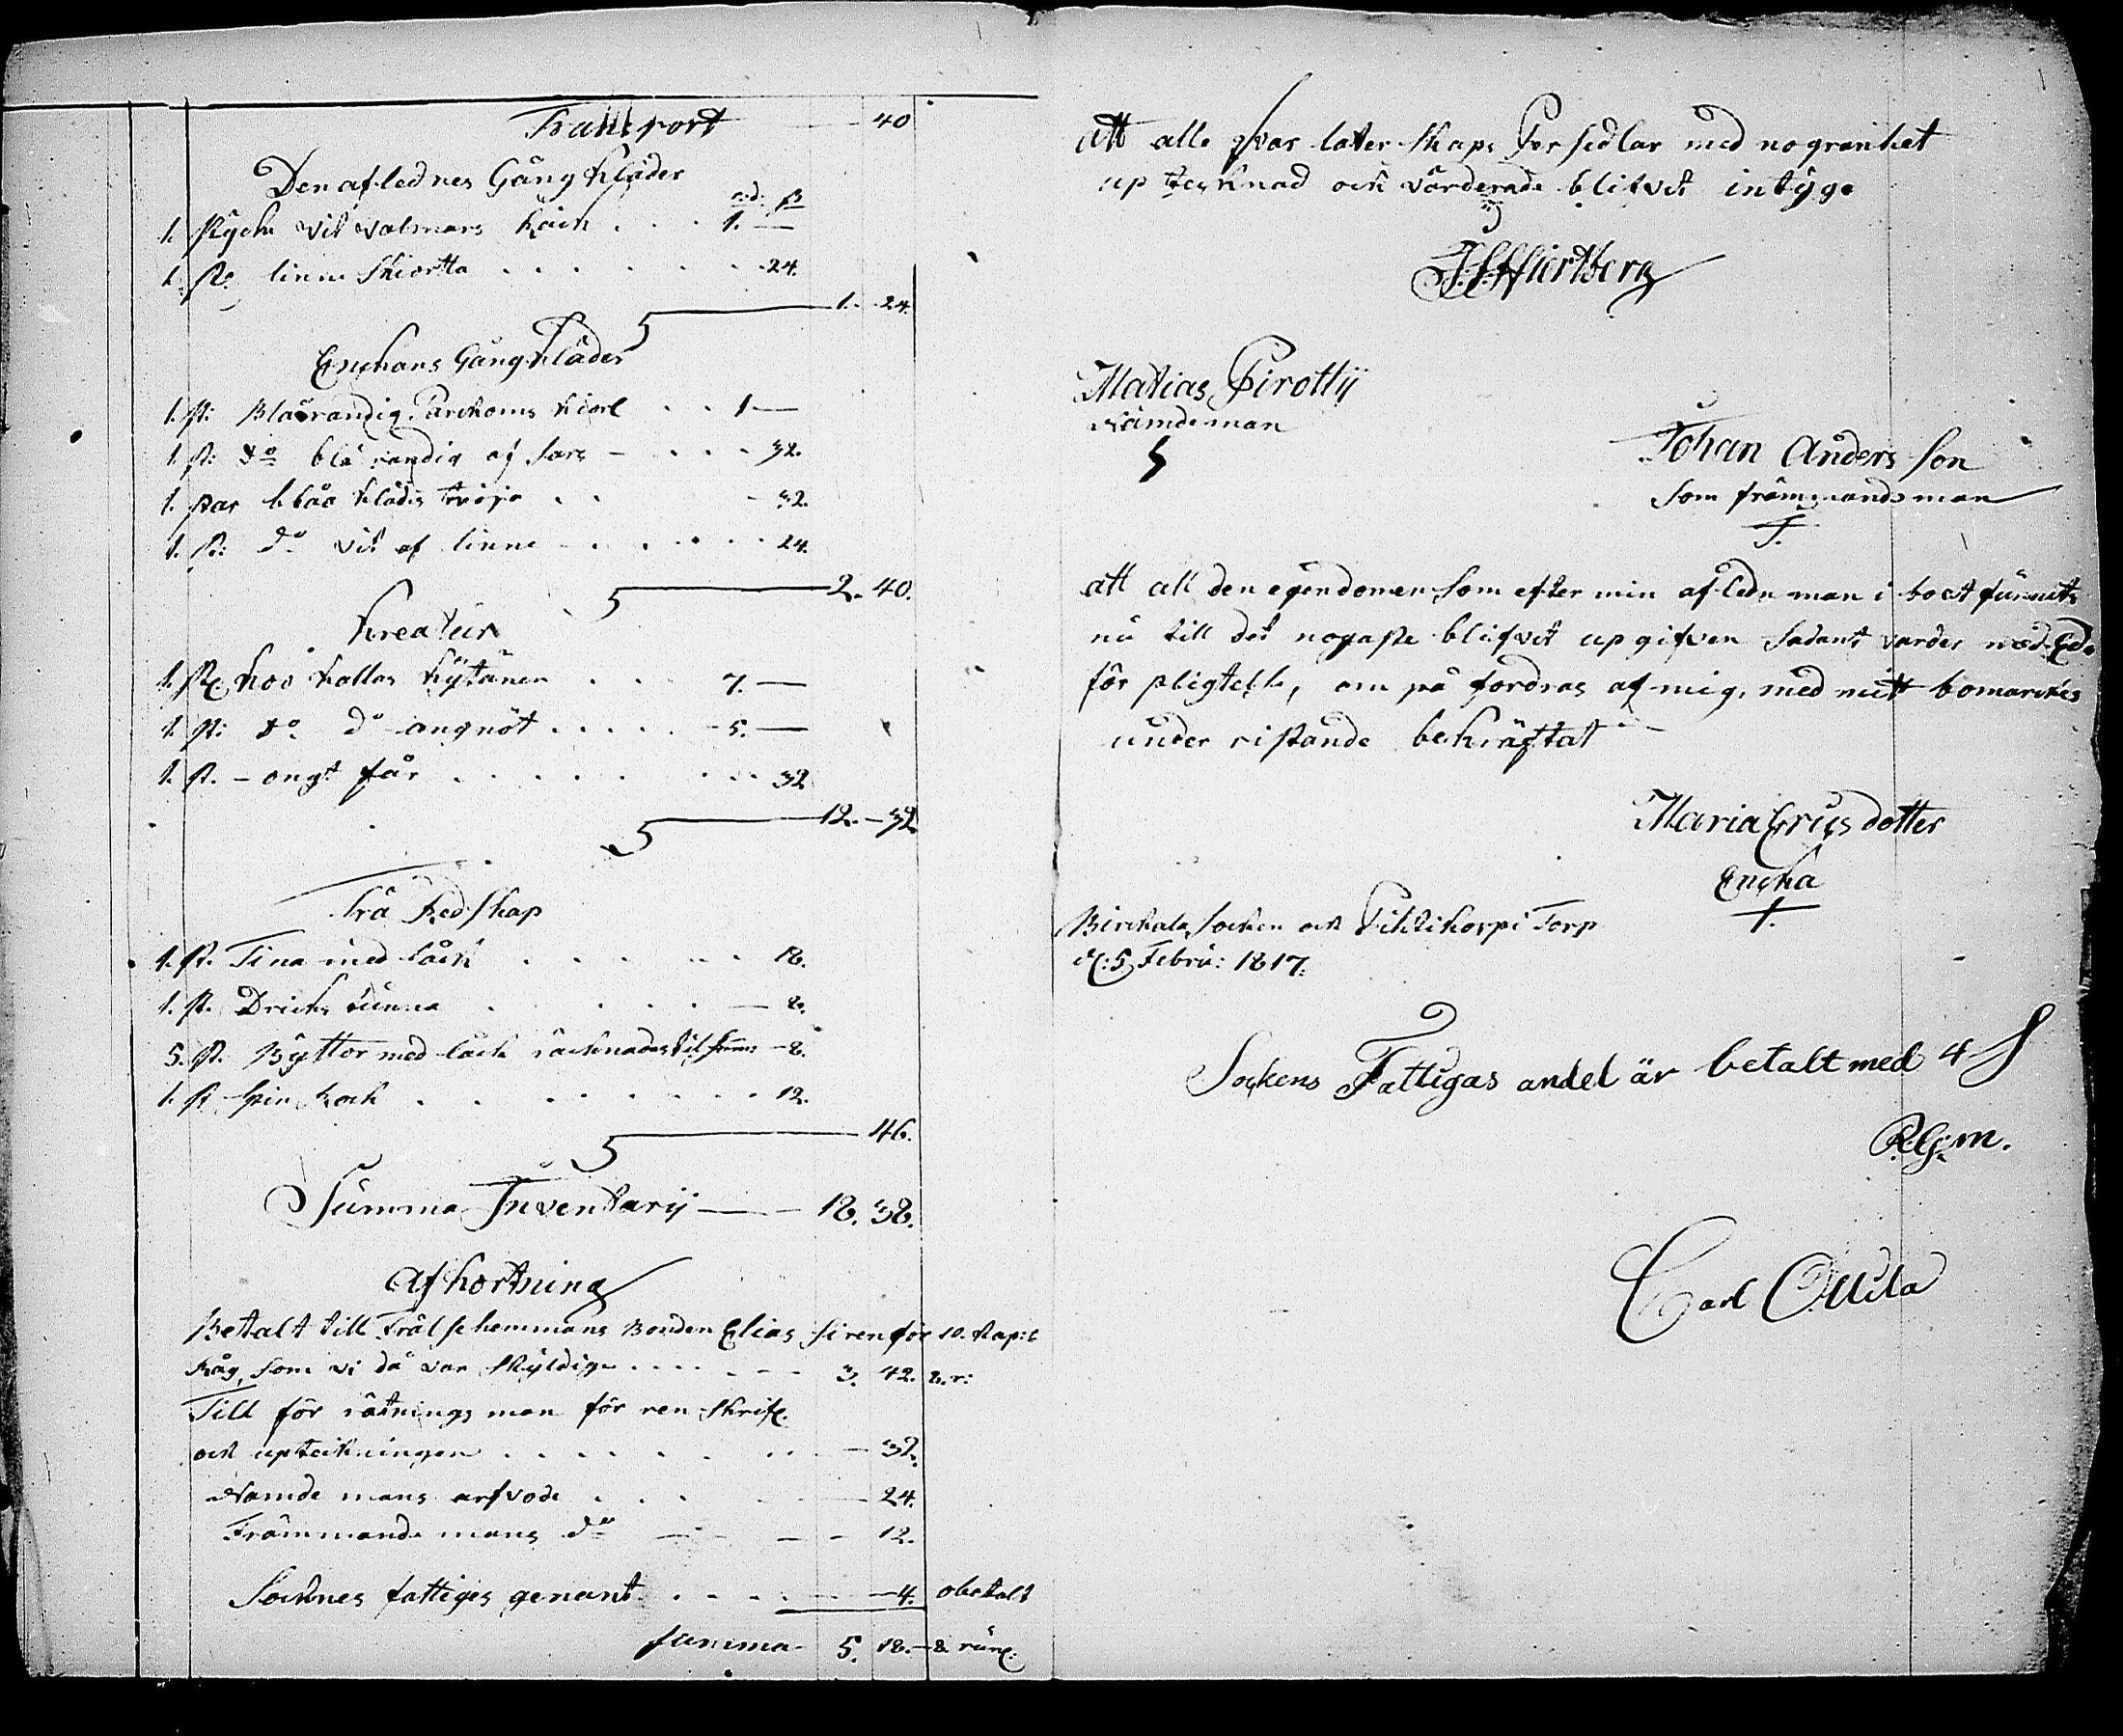 Transport 40
Den aflednes Gång kläder
rd: ß
1. stycke vit valmars häck . . . 1. —
1. st: linne skiortta . . . . . . . 24.
1. 24.
Enckans Gång kläder
1. st: Blårandig Parckoms kiorl . . 1 —
1. st: do blå randig af sars — . . . 32.
1. par blåa klädes tröja . . 32.
1. st: do vit af linne . . . . . . 24.
2. 40.
Kreatur
1. st. koo kallas kÿtänen . . . 7. —
1. st: do do angnöt . . . . . 5. —
1. st. — ongt får . . . . . . . 32
12. — 32
Trä Red skap
1. st. Tina med låck . . . . . . 18.
1. st. Dricks tunna . . . . . — 8.
5. st. Bÿttor med låck räcknades til — 8.
1. st spin Rock . . . . . . . . 12.
46.
Summa Inventarij — 18. 38.
Afkortning
Betalt till Frälsehemmans Bonden Elias Siren för 10. kap:r
Råg, som vi då var skÿldige . . . . 3. 42. 8. r:
Till för rätnings man för ren skrif.
ock upteckningen . . . . . . . . — 32.
Nämde mans arfvode . . . — 24.
Främmande mans do — — — 12.
Socknes fattiges genant . . . . . — 4. obetalt
summa 5. 18. — 8. run.
Att alla qvar låtenskaps Persedlar med nogranhet
up tecknad ock värderade blifvit intÿga
Hiertberg
Matias Pirottij
Nämdeman
Johan Anders Son
Som främmande man
att all den egendomen som efter min afledn man i boet funnits
nu till det nogaste blifvit up gifven sådant varder med Ed
för pligtelse, om på fordras af mig, med mitt bomarckes
under ristande bekräftat
Maria Ericsdotter
Encka
Birckala Socken ock Pihtikorpi Torp
d: 5 Febru: 1817.
Sockens Fattigas andel är betalt med 4 ß
R.G.m.
Carl Ollila